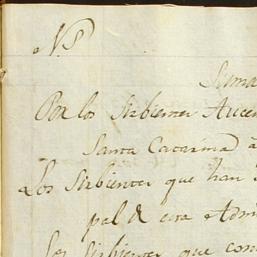 N.º
Suma
Por los Sirbientes Aucen
Santa Catarina à
Los Sirbientes que han
pal de esta Admi
Los Sirbientes que con